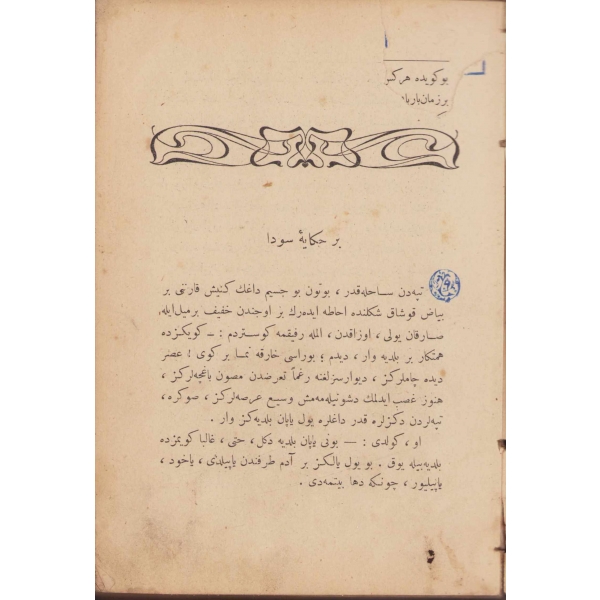 بو كویده هركز
بر زمان بار با
بر حكایهٔ سودا
تپه‌دن ساحله‌قدر ، بوتون بو جسیم داغك كنیش قارنی بر
بیاض قوشاق شكلنده احاطه ایده‌رك بر اوجندن خفیف بر میل ایله
صارقان یولی ، اوزاقدن ، المله رفیقمه كوستردم : — كویكزده
همتكار بر بلدیه وار ، دیدم ؛ بوراسی خارقه نما بر كوی ! عصر
دیده چاملركز ، دیوارسزلغنه رغماً تعرضدن مصون باغچه‌لركز ،
هنوز غصب ایدلمك دشونیلمه‌مش وسیع عرصه‌لركز ، صوكره ،
تپه‌لردن دكزلره قدر داغلره یول یاپان بلدیه‌كز وار .
او ، كولدی : — بونی یاپان بلدیه دكل ، حتی ، غالبا كویمزده
بلدیه‌بیله یوق . بو یول یالكز بر آدم طرفندن یاپیلدی ، یاخود ،
یاپیلیور ، چونكه دها بیتمه‌دی .